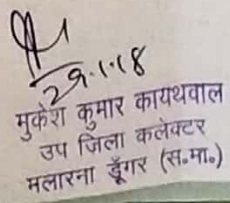 29.1.18
मुकेश कुमार कायथवाल
उप जिला कलेक्टर
मलारना डूँगर (स.मा.)